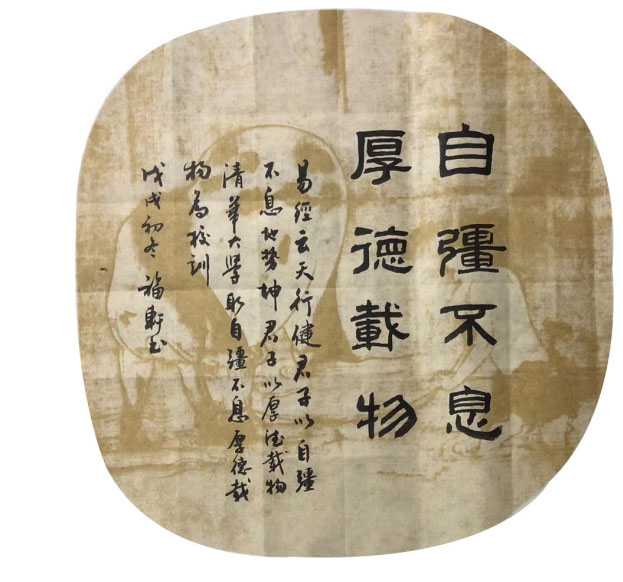 自彊不息
厚德載物
易經云天行健君子以自彊
不息地势坤君子以厚德載物
清華大學取自彊不息厚德載
物為校訓
戊戌初冬 福軒书